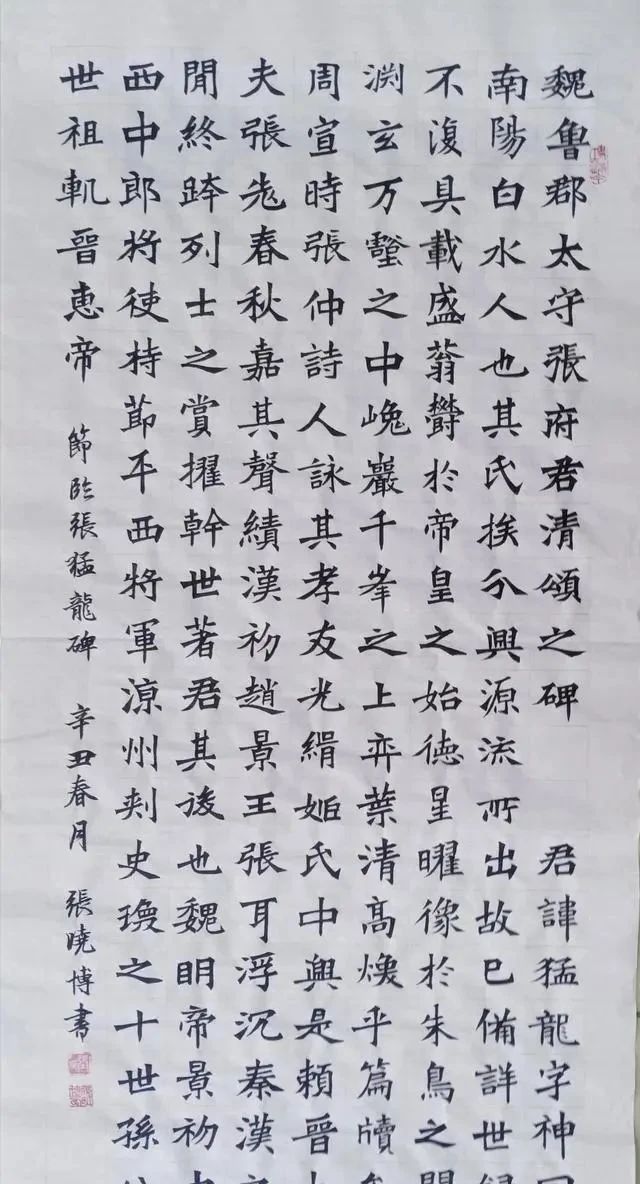 魏魯郡太守張府君清頌之碑 君諱猛龍字神
南陽白水人也其氏挨分興源流所出故已備詳世
不復具載盛蓊欝於帝皇之始德星曜像於朱鳥之
渊玄万壑之中巉巖千峯之上弈葉清高煥乎篇牘
周宣時張仲詩人詠其孝友光緝姬氏中興是賴晉
夫張老春秋嘉其聲績漢初趙景王張耳浮沉秦漢
聞終跨列士之賞擢幹世著君其後也魏明帝景初
西中郎将使持節平西将軍涼州刺史瑍之十世孫
世祖軌晉惠帝 節臨張猛龍碑 辛丑春月 張曉博書